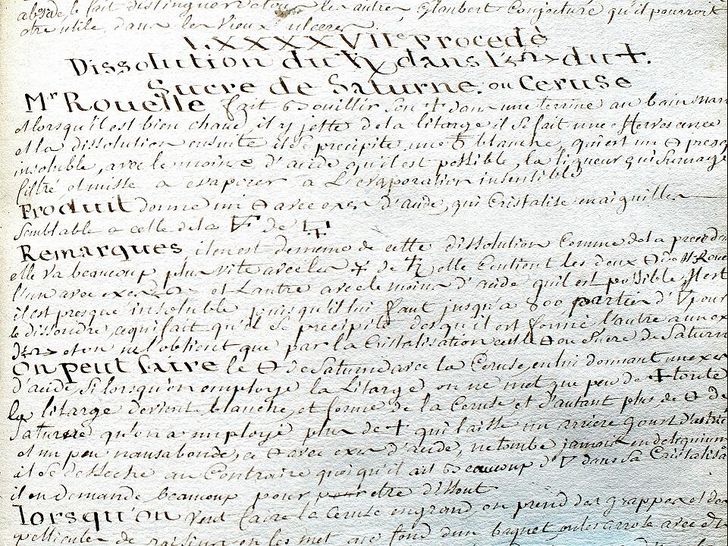 le fait distinguer de tous les autres, Glauber Conjecture qu'il pourroit
etre utile, dans les Vieux ulceres.
LXXXXVIIe procedé
Dissolution du ♄ dans l' du +.
Sucre de Saturne. ou Ceruse
Mr Rouelle fait Bouillir son + dans une terrine au bain
et lorsqu'il est bien chaud, il y jette de la litarge il se fait une effervescence
et la dissolution ensuite il se precipite une blanche, qui est un presque
insoluble, avec le moins d'acide qu'il est possible, la liqueur qui surnage
filtré et mise a evaporer a L'evaporation insensible
Produit donne un avec exces d'acide, qui Cristalise en aiguilles
Semblable a celle de la de
Remarques il en est de meme de cette dissolution Comme de la precedente
elle va beaucoup plus vite avec le + de elle Contient les deux Rouelle
l'un avec exces et L'autre avec le moins d'acide qu'il est possible
il est presque insoluble, puisqu'il lui faut jusqu'a 800 parties d'▽ pour
le dissoudre, ce qui fait qu'il se precipite des qu'il est formé, l'autre
et on ne l'obtient que par la Cristalisation c'est le ou Sucre de Saturne
On peut faire le de Saturne avec la Ceruse, en lui donnant un exces
d'acide, Si lorsqu'on employe la Litarge on ne met que peu de + toute
la litarge devient blanche, et forme de la Ceruse et d'autant plus de de
Saturne qu'on a employé plus de + qui laisse un arriere gout
et un peu nausabonde, ce avec exces d'acide, ne tombe jamais en deliquium
il se desseche au Contraire quoi qu'il ait Beaucoup d'▽ dans sa Cristalisation
il en demande beaucoup pour etre dissout.
lorsqu'on Veut faire la Ceruse en grand on prend des grappes et des
pellicules de raisins on les met au fond d'un baquet, on les arrose avec